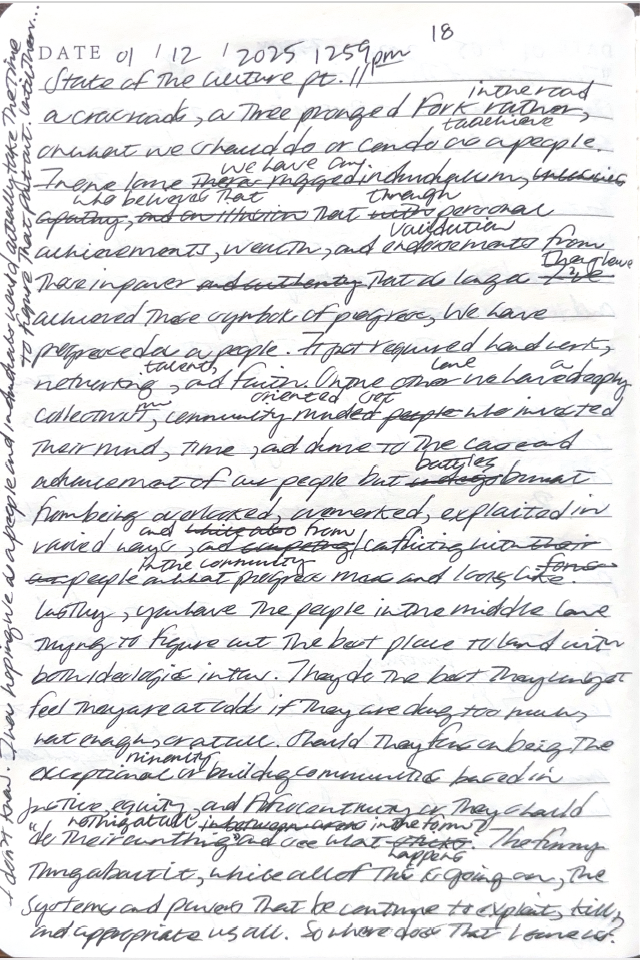 18
DATE 01 / 12 / 2025 1259pm
State of the Culture pt. 11
in the road
a crossroads, a three pronged fork rather,
to achieve
on what we should do or can do as a people.
we have any
In one lane rugged individualism,
who believes that through
apathy, and an illusion that with personal
validation
achievements, wealth, and endorsements from
they have
those in power and authority that as long as
achieved those symbols of progress, we have
progressed as a people. It just required hard work,
talent, lane a
networking, and faith. On the other we have deeply
oriented
collectivist, community minded people who invested
their mind, time, and dime to the cause and
battles
advancement of our people but burnout
from being overlooked, overworked, exploited in
and while also from
varied ways, and competing/conflicting with their
in the community
people on what progress means and looks like.
Lastly, you have the people in the middle lane
trying to figure out the best place to land with
both ideologies in tow. They do the best they can yet
feel they are at odds if they are doing too much,
not enough, or at all. Should they focus on being the
minority
exceptional or building communities based in
justice, equity, and Afrocentricity or they should
nothing at all in between in the form
"do their own thing" and see what sticks. The funny
happens
thing about it, while all of this is going on, the
systems and powers that be continue to exploit, kill,
and appropriate us all. So where does that leave us.
I don't know. I am hoping we as a people and individuals would actually take the time
to figure that part out later than...